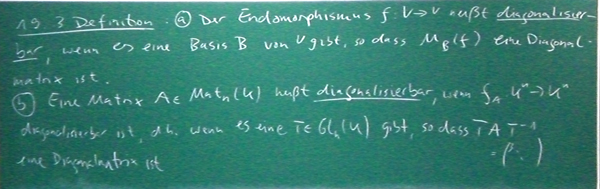 19.3 Definition: ⓐ Der Endomorphismus f: V→V heißt diagonalisier-
bar, wenn es eine Basis B von V gibt, so dass M_B(f) eine Diagonal-
matrix ist.
ⓑ Eine Matrix A∈Mat_n(K) heißt diagonalisierbar, wenn f_A K^n→K^n
diagonalisierbar ist, d.h. wenn es eine T∈GL_n(K) gibt, so dass T A T^-1
eine Diagonalmatrix ist